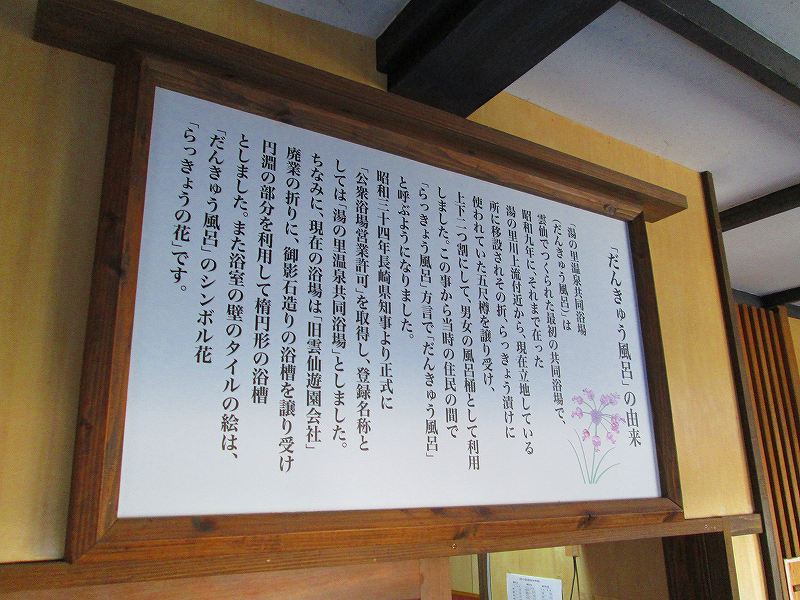 「だんきゅう風呂」の由来
「湯の里温泉共同浴場
（だんきゅう風呂）」は
雲仙でつくられた最初の共同浴場で、
昭和九年に、それまで在った
湯の里川上流付近から、現在立地している
所に移設されその折、らっきょう漬けに
使われていた五尺樽を譲り受け、
上下二つ割にして、男女の風呂桶として利用
しました。この事から当時の住民の間で
「らっきょう風呂」方言で「だんきゅう風呂」
と呼ぶようになりました。
昭和三十四年長崎県知事より正式に
「公衆浴場営業許可」を取得し、登録名称と
しては「湯の里温泉共同浴場」としました。
ちなみに、現在の浴場は「旧雲仙遊園会社」
廃業の折りに、御影石造りの浴槽を譲り受け
円淵の部分を利用して楕円形の浴槽
としました。また浴室の壁のタイルの絵は、
「だんきゅう風呂」のシンボル花
「らっきょうの花」です。